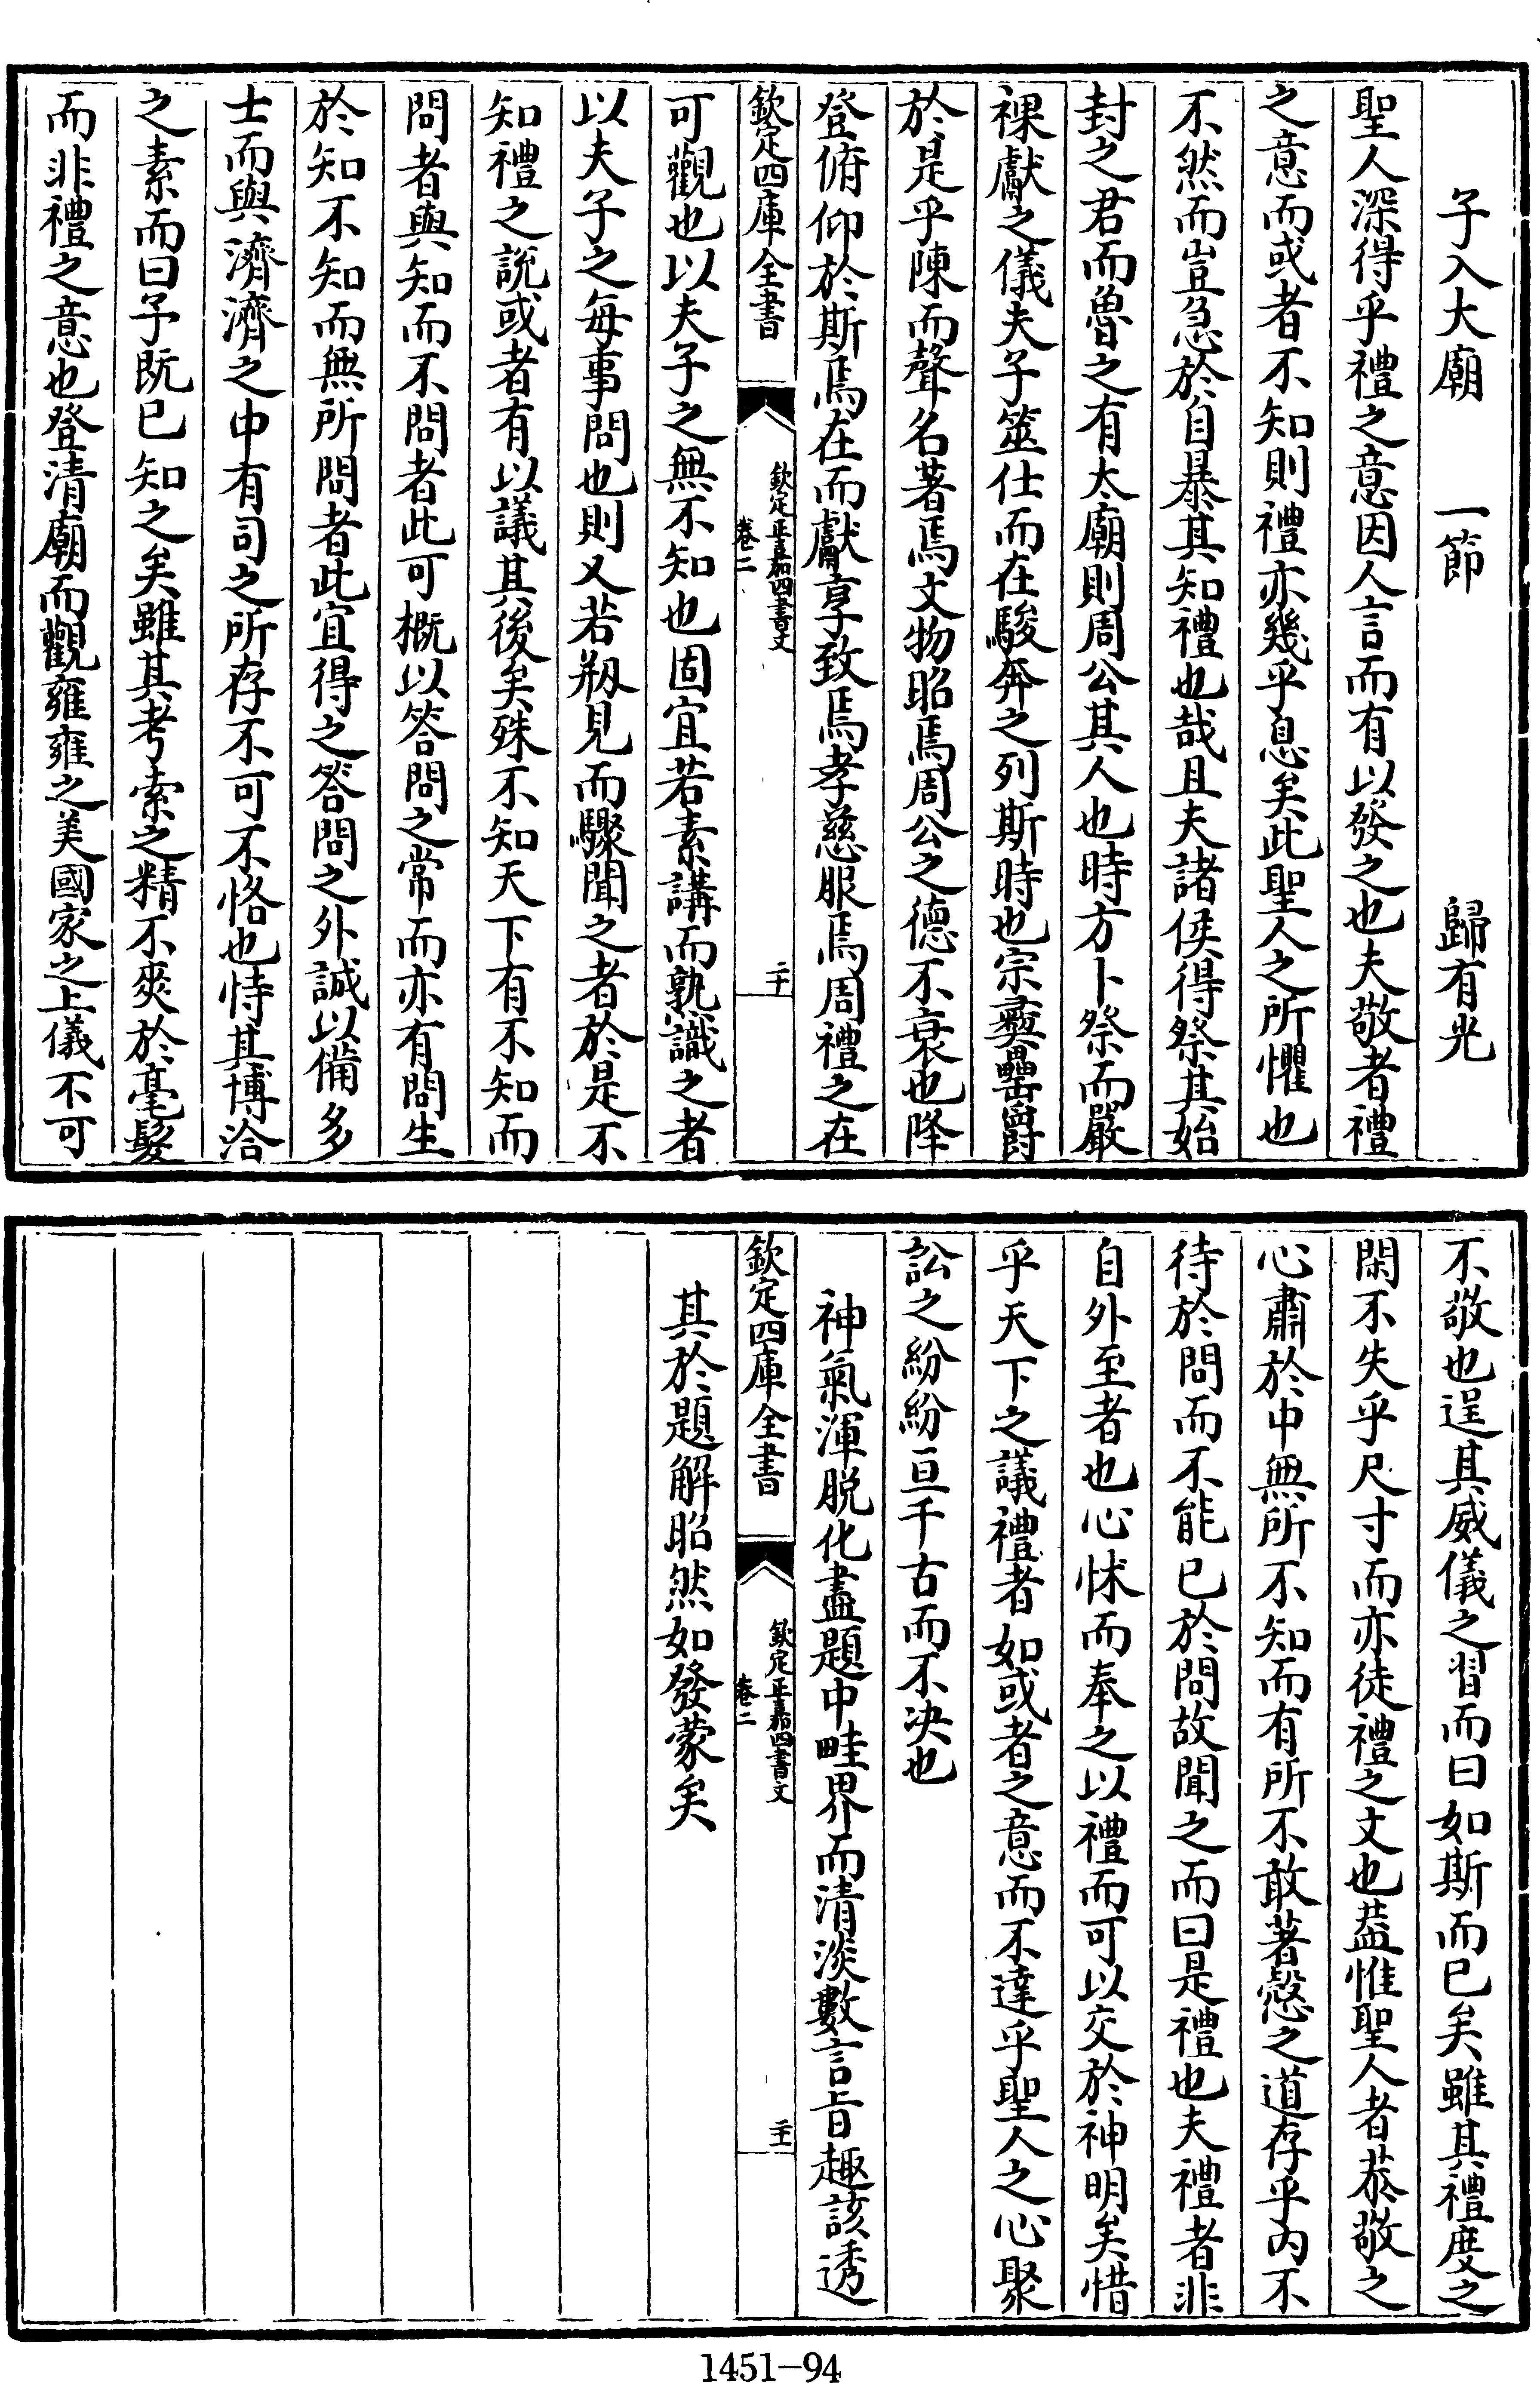 子入大廟　一節　歸有光
聖人深得乎禮之意因人言而有以發之也夫敬者禮
之意而或者不知則禮亦幾乎息矣此聖人之所懼也
不然而豈急於自暴其知禮也哉且夫諸侯得祭其始
封之君而魯之有太廟則周公其人也時方卜祭而嚴
祼獻之儀夫子筮仕而在駿奔之列斯時也宗彝罍爵
於是乎陳而聲名著焉文物昭焉周公之德不衰也降
登俯仰於斯焉在而獻享致焉孝慈服焉周禮之在
欽定四庫全書
欽定正嘉四書文
卷二
二十
可觀也以夫子之無不知也固宜若素講而孰識之者
以夫子之每事問也則又若剏見而驟聞之者於是不
知禮之說或者有以議其後矣殊不知天下有不知而
問者與知而不問者此可概以答問之常而亦有問生
於知不知而無所問者此宜得之答問之外誠以備多
士而與濟濟之中有司之所存不可不恪也恃其博洽
之素而曰予既已知之矣雖其考索之精不爽於毫髮
而非禮之意也登清廟而觀雍雍之美國家之上儀不可
不敬也逞其威儀之習而曰如斯而已矣雖其禮度之
閑不失乎尺寸而亦徒禮之文也葢惟聖人者恭敬之
心肅於中無所不知而有所不敢著慤之道存乎內不
待於問而不能已於問故聞之而曰是禮也夫禮者非
自外至者也心怵而奉之以禮而可以交於神明矣惜
乎天下之議禮者如或者之意而不達乎聖人之心聚
訟之紛紛亘千古而不决也
神氣渾脱化盡題中畦界而清淡數言旨趣該透
欽定四庫全書
欽定正嘉四書文
卷二
二十一
其於題解昭然如發蒙矣
1451-94